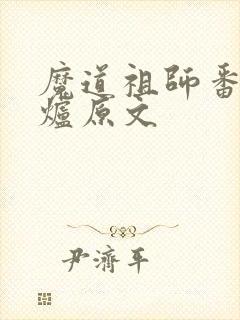 魔道祖師番
爐原文
尹濟平